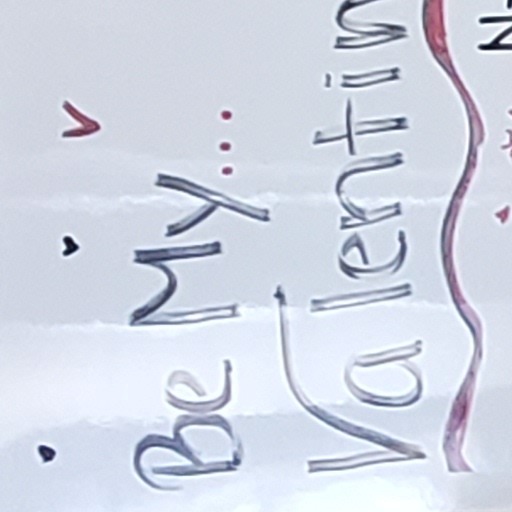 Be My...
Valentin